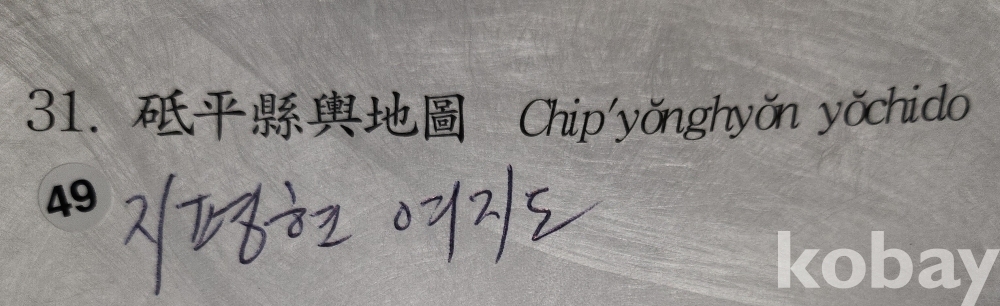 31. 砥平縣輿地圖 Chip'yŏnghyŏn yŏchido
49 지평현 여지도
kobay